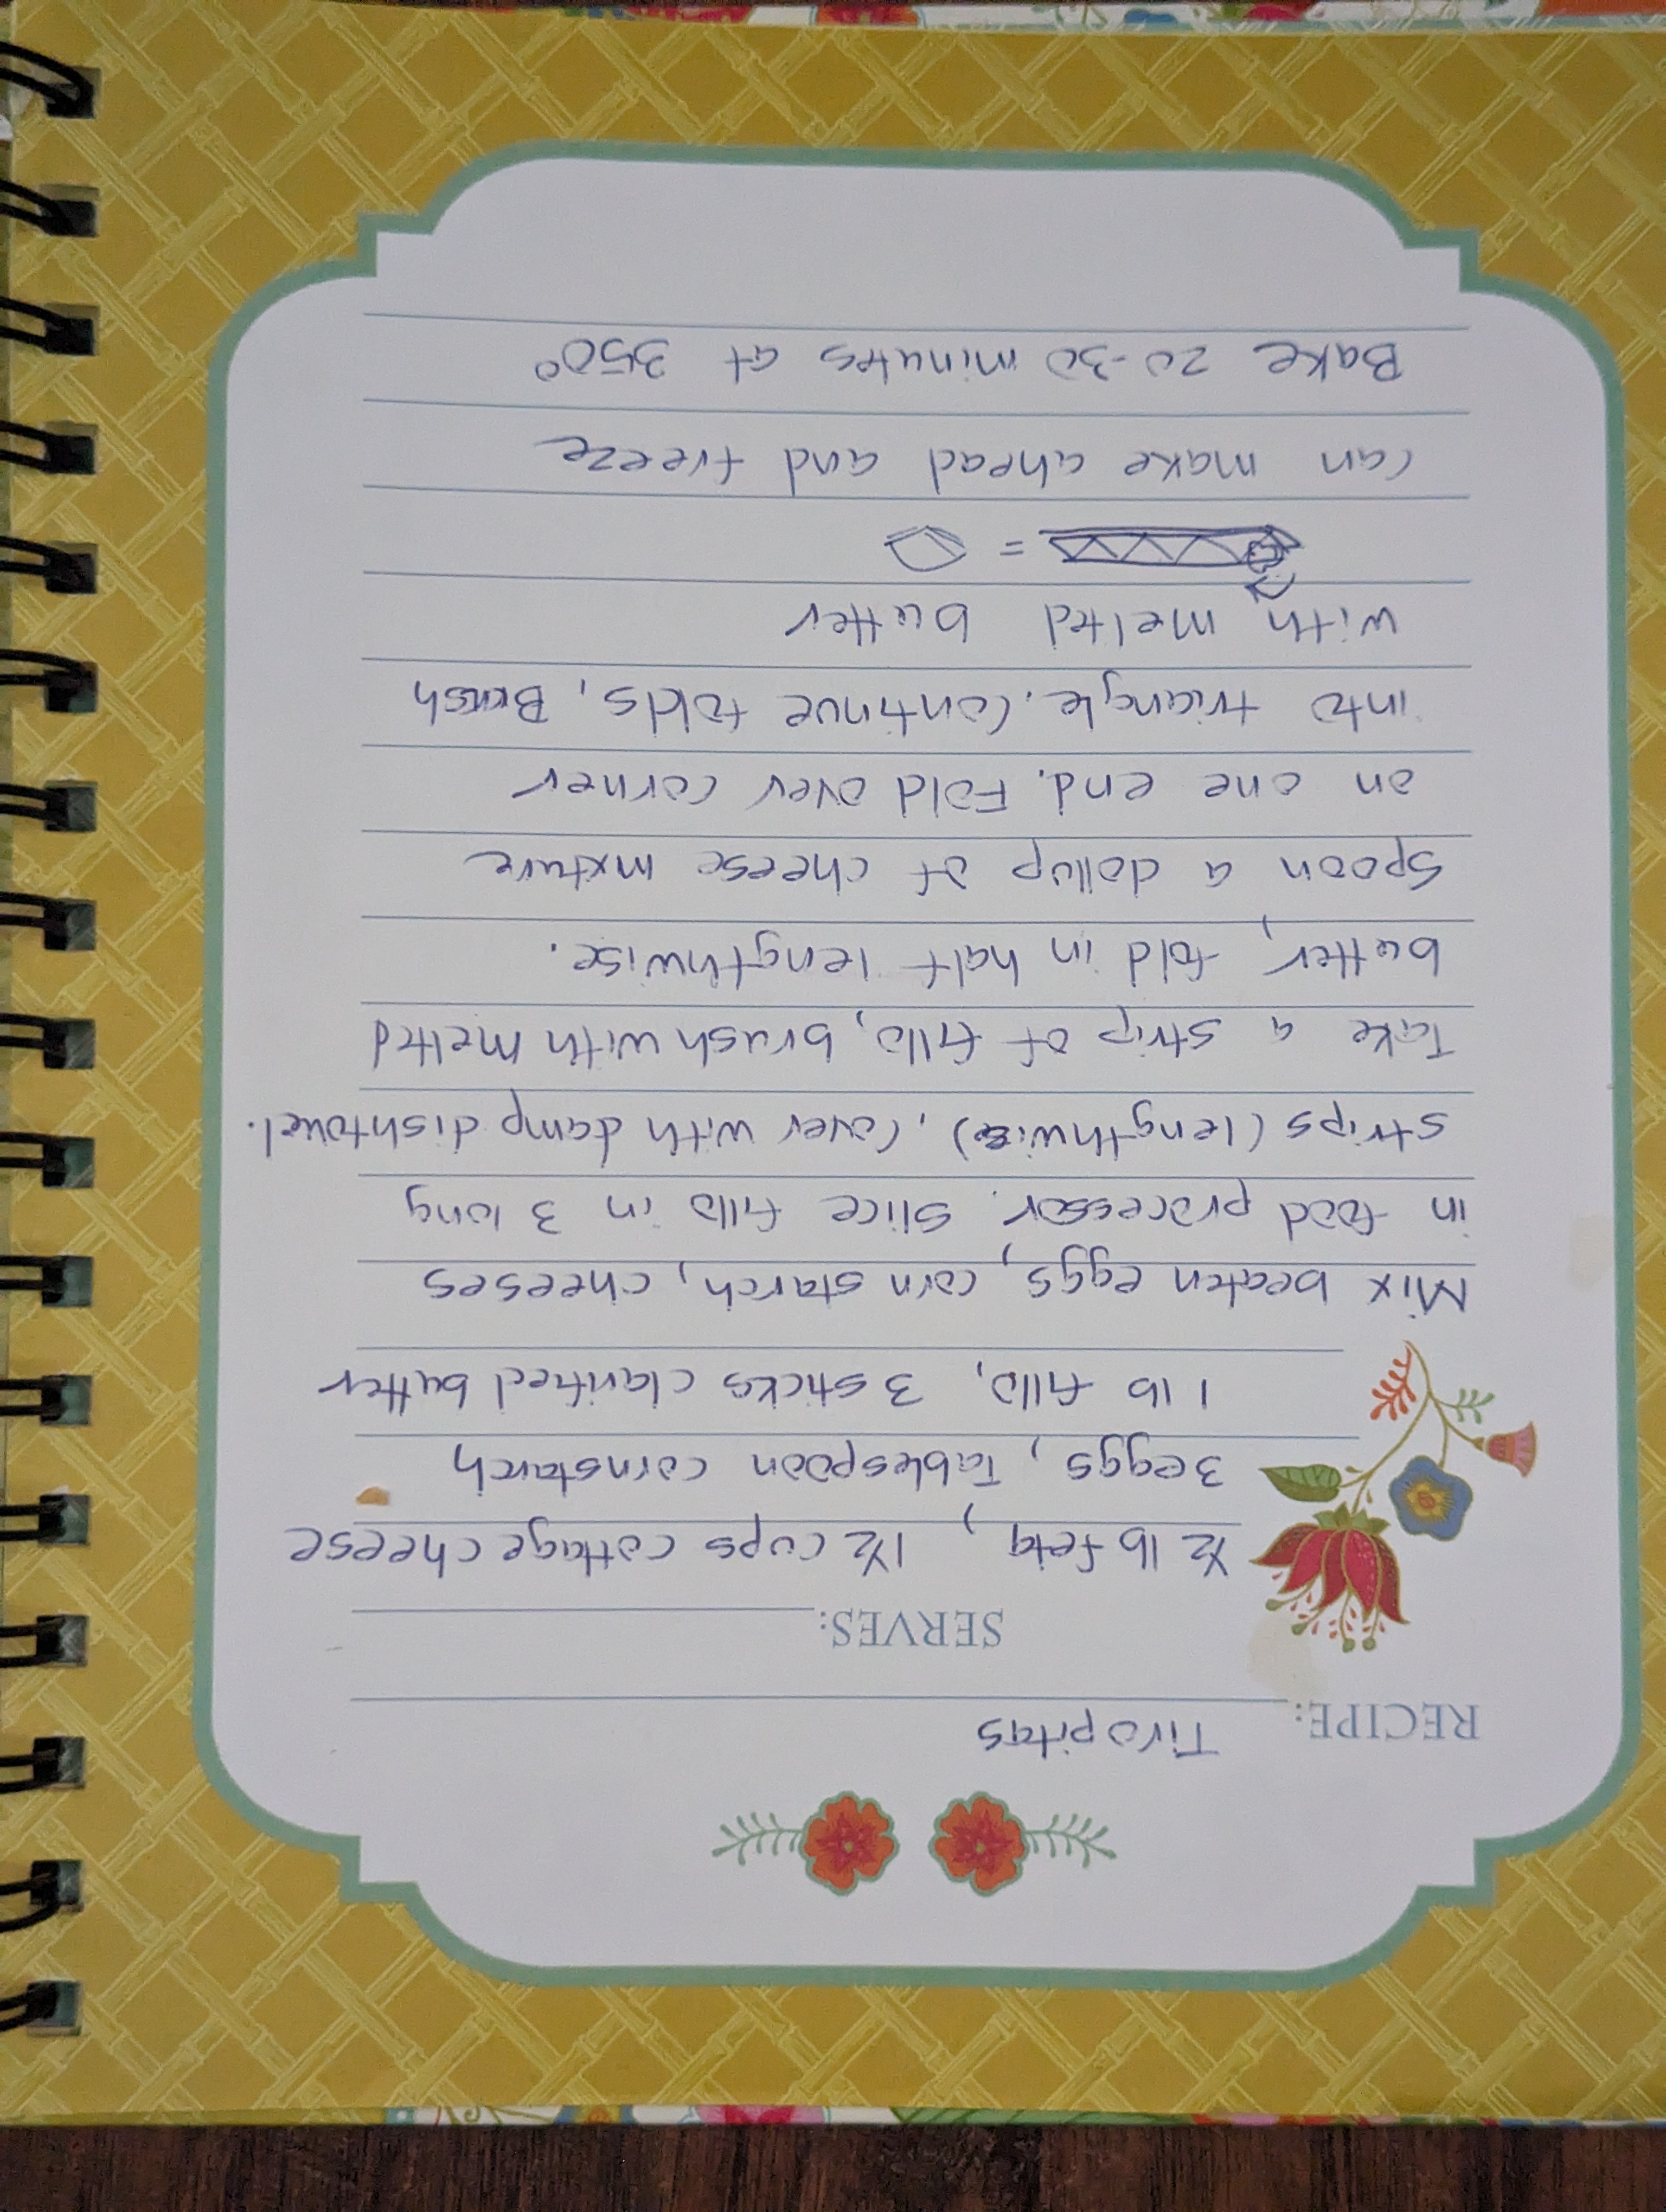 RECIPE: Tiropitas
SERVES:
½ lb feta, 1½ cups cottage cheese
3 eggs, Tablespoon cornstarch
1 lb fillo, 3 sticks clarified butter
Mix beaten eggs, corn starch, cheeses
in food processor. Slice fillo in 3 long
strips (lengthwise), Cover with damp dishtowel.
Take a strip of fillo, brush with melted
butter, fold in half lengthwise.
Spoon a dollup of cheese mxture
on one end. Fold over corner
into triangle. Continue folds, Brush
with melted butter
=
can make ahead and freeze
Bake 20-30 minutes at 350°